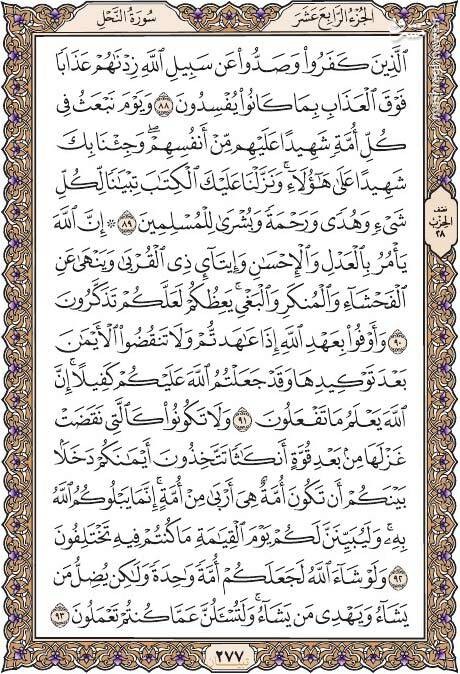 سورة النحل
الجزء الرابع عشر
ٱلَّذِينَ كَفَرُوا۟ وَصَدُّوا۟ عَن سَبِيلِ ٱللَّهِ زِدْنَٰهُمْ عَذَابًا
فَوْقَ ٱلْعَذَابِ بِمَا كَانُوا۟ يُفْسِدُونَ ٨٨ وَيَوْمَ نَبْعَثُ فِى
كُلِّ أُمَّةٍ شَهِيدًا عَلَيْهِم مِّنْ أَنفُسِهِمْ ۖ وَجِئْنَا بِكَ
شَهِيدًا عَلَىٰ هَٰٓؤُلَآءِ ۚ وَنَزَّلْنَا عَلَيْكَ ٱلْكِتَٰبَ تِبْيَٰنًا لِّكُلِّ
شَىْءٍ وَهُدًى وَرَحْمَةً وَبُشْرَىٰ لِلْمُسْلِمِينَ ٨٩ ۞ إِنَّ ٱللَّهَ
يَأْمُرُ بِٱلْعَدْلِ وَٱلْإِحْسَٰنِ وَإِيتَآئِ ذِى ٱلْقُرْبَىٰ وَيَنْهَىٰ عَنِ
ٱلْفَحْشَآءِ وَٱلْمُنكَرِ وَٱلْبَغْىِ ۚ يَعِظُكُمْ لَعَلَّكُمْ تَذَكَّرُونَ
٩٠ وَأَوْفُوا۟ بِعَهْدِ ٱللَّهِ إِذَا عَٰهَدتُّمْ وَلَا تَنقُضُوا۟ ٱلْأَيْمَٰنَ
بَعْدَ تَوْكِيدِهَا وَقَدْ جَعَلْتُمُ ٱللَّهَ عَلَيْكُمْ كَفِيلًا ۚ إِنَّ
ٱللَّهَ يَعْلَمُ مَا تَفْعَلُونَ ٩١ وَلَا تَكُونُوا۟ كَٱلَّتِى نَقَضَتْ
غَزْلَهَا مِنۢ بَعْدِ قُوَّةٍ أَنكَٰثًا تَتَّخِذُونَ أَيْمَٰنَكُمْ دَخَلًۢا
بَيْنَكُمْ أَن تَكُونَ أُمَّةٌ هِىَ أَرْبَىٰ مِنْ أُمَّةٍ ۚ إِنَّمَا يَبْلُوكُمُ ٱللَّهُ
بِهِۦ ۚ وَلَيُبَيِّنَنَّ لَكُمْ يَوْمَ ٱلْقِيَٰمَةِ مَا كُنتُمْ فِيهِ تَخْتَلِفُونَ
٩٢ وَلَوْ شَآءَ ٱللَّهُ لَجَعَلَكُمْ أُمَّةً وَٰحِدَةً وَلَٰكِن يُضِلُّ مَن
يَشَآءُ وَيَهْدِى مَن يَشَآءُ ۚ وَلَتُسْـَٔلُنَّ عَمَّا كُنتُمْ تَعْمَلُونَ ٩٣
نصف
الحزب
٢٨
٢٧٧